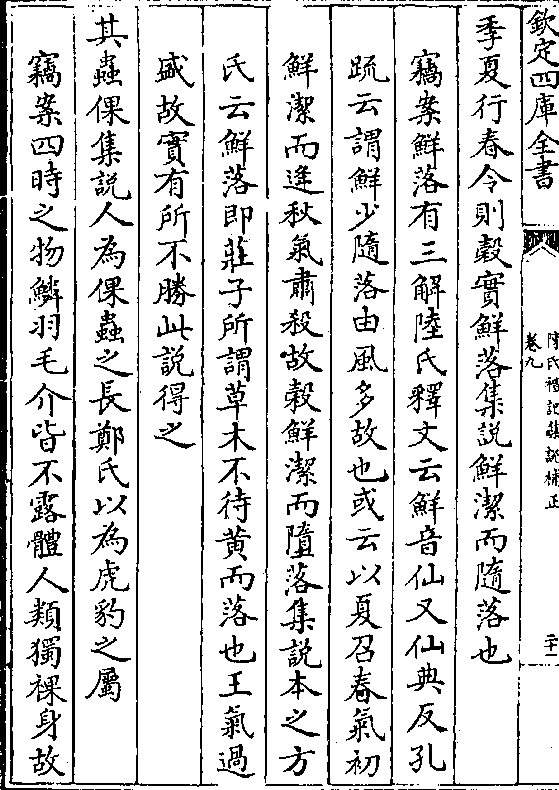 欽定四庫全書
陳氏禮記集說補正
卷九
二十一
季夏行春令則穀實鮮落集説鮮潔而隨落也
竊案鮮落有三解陸氏釋文云鮮音仙又仙典反孔
疏云謂鮮少隨落由風多故也或云以夏召春氣初
鮮潔而逢秋氣肅殺故穀鮮潔而墮落集説本之方
氏云鮮落即莊子所謂草木不待黄而落也王氣過
盛故實有所不勝此説得之
其蟲倮集説人為倮蟲之長鄭氏以為虎豹之屬
竊案四時之物鱗羽毛介皆不露體人類獨裸身故